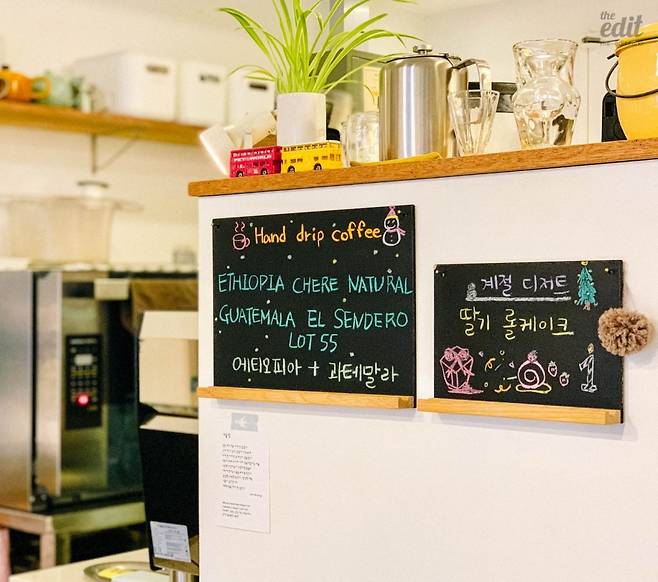 the
edit
Hand drip coffee
ETHIOPIA CHERE NATURAL
GUATEMALA EL SENDERO
LOT 55
에티오피아 + 과테말라
계절 디저트
딸기 롤케이크